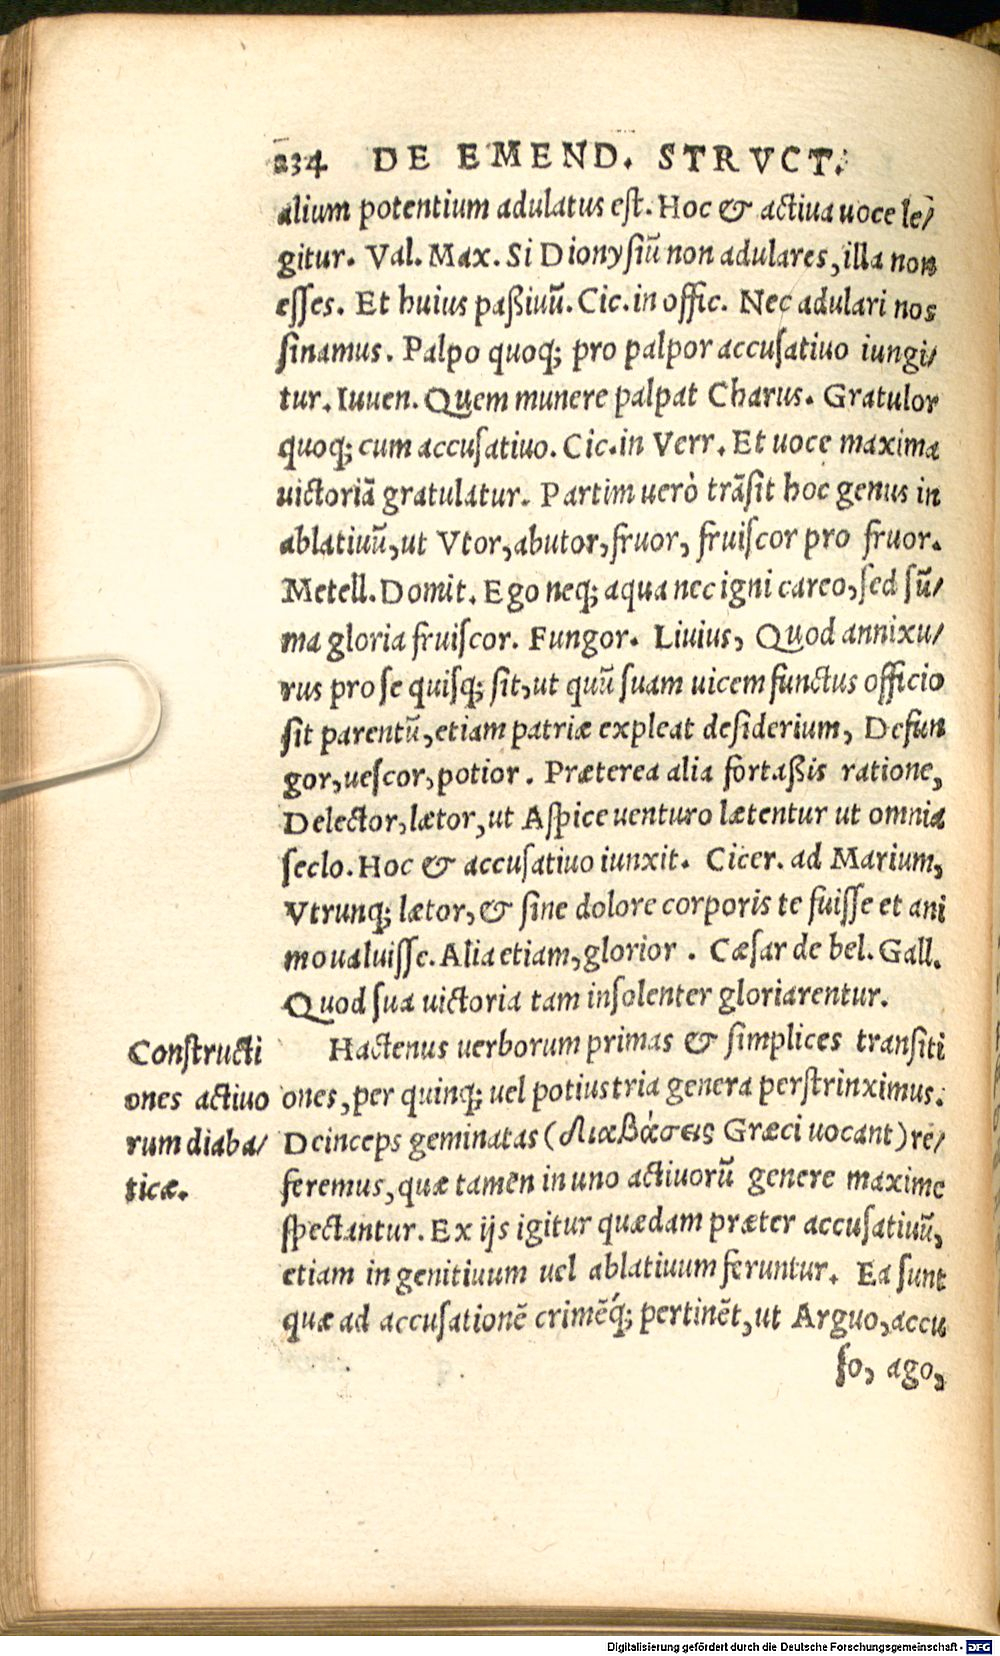 234 DE EMEND. STRVCT.
alium potentium adulatus est. Hoc & actiua uoce le/
gitur. Val. Max. Si Dionysiū non adulares, illa non
esses. Et huius paßiuū. Cic. in offic. Nec adulari nos
sinamus. Palpo quoq; pro palpor accusatiuo iungi/
tur. Iuuen. Quem munere palpat Charus. Gratulor
quoq; cum accusatiuo. Cic. in Verr. Et uoce maxima
uictoriā gratulatur. Partim uerò trāsit hoc genus in
ablatiuū, ut Vtor, abutor, fruor, fruiscor pro fruor.
Metell. Domit. Ego neq; aqua nec igni careo, sed sū/
ma gloria fruiscor. Fungor. Liuius, Quod annixu/
rus pro se quisq; sit, ut quū suam uicem functus officio
sit parentū, etiam patriæ expleat desiderium, Defun
gor, uescor, potior. Præterea alia fortaßis ratione,
Delector, lætor, ut Aspice uenturo lætentur ut omnia
seclo. Hoc & accusatiuo iunxit. Cicer. ad Marium,
Vtrunq; lætor, & sine dolore corporis te fuisse et ani
mo ualuisse. Alia etiam, glorior. Cæsar de bel. Gall.
Quod sua uictoria tam insolenter gloriarentur.
Constructi
ones actiuo
rum diaba/
ticæ.
Hactenus uerborum primas & simplices transiti
ones, per quinq; uel potius tria genera perstrinximus.
Deinceps geminatas (διαβάσεις Græci uocant) re/
feremus, quæ tamen in uno actiuorū genere maxime
spectantur. Ex ijs igitur quædam præter accusatiuū,
etiam in genitiuum uel ablatiuum feruntur. Ea sunt
quæ ad accusationē crimēq́; pertinēt, ut Arguo, accu
so, ago,
Digitalisierung gefördert durch die Deutsche Forschungsgemeinschaft - DFG